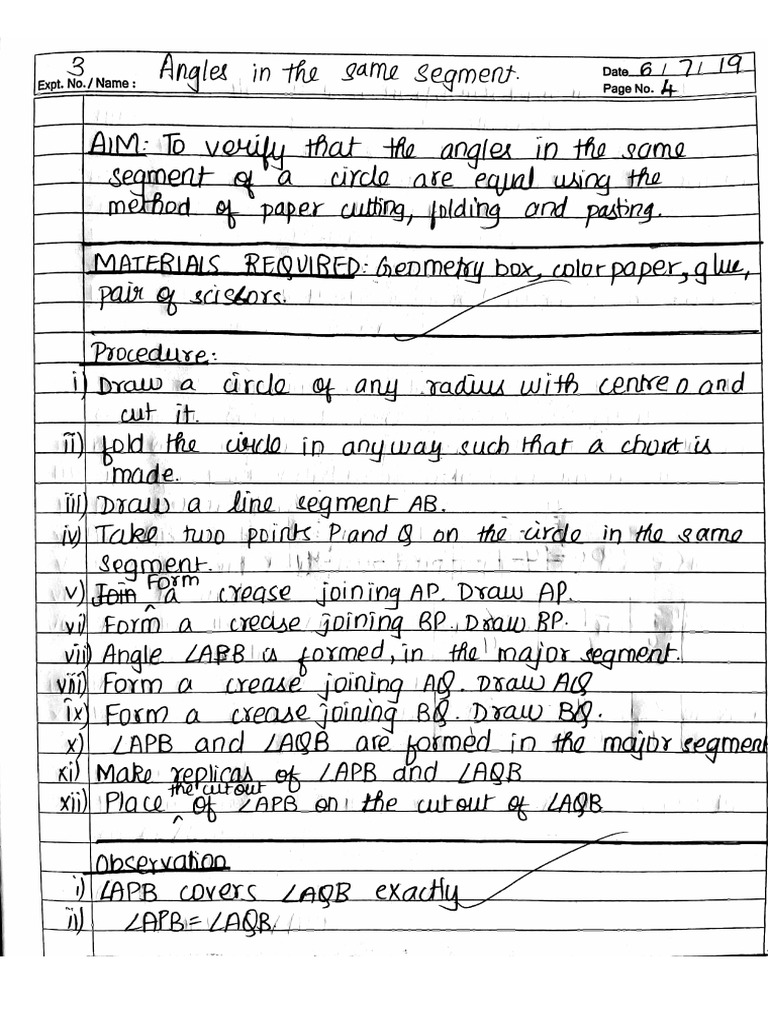 3 Angles in the same segment. Date 6/7/19
Expt. No. / Name : Page No. 4
AIM: To verify that the angles in the same
segment of a circle are equal using the
method of paper cutting, folding and pasting.
MATERIALS REQUIRED: Geometry box, color paper, glue,
pair of scissors.
Procedure:
i) Draw a circle of any radius with centre O and
cut it.
ii) fold the circle in anyway such that a chort is
made.
iii) Draw a line segment AB.
iv) Take two points P and Q on the circle in the same
segment.
v) Form a crease joining AP. Draw AP.
vi) Form a crease joining BP. Draw BP.
vii) Angle ∠APB is formed, in the major segment.
viii) Form a crease joining AQ. Draw AQ
ix) Form a crease joining BQ. Draw BQ.
x) ∠APB and ∠AQB are formed in the major segment
xi) Make replicas of ∠APB and ∠AQB
xii) Place the cutout of ∠APB on the cut out of ∠AQB
Observation
i) ∠APB covers ∠AQB exactly
ii) ∠APB = ∠AQB.